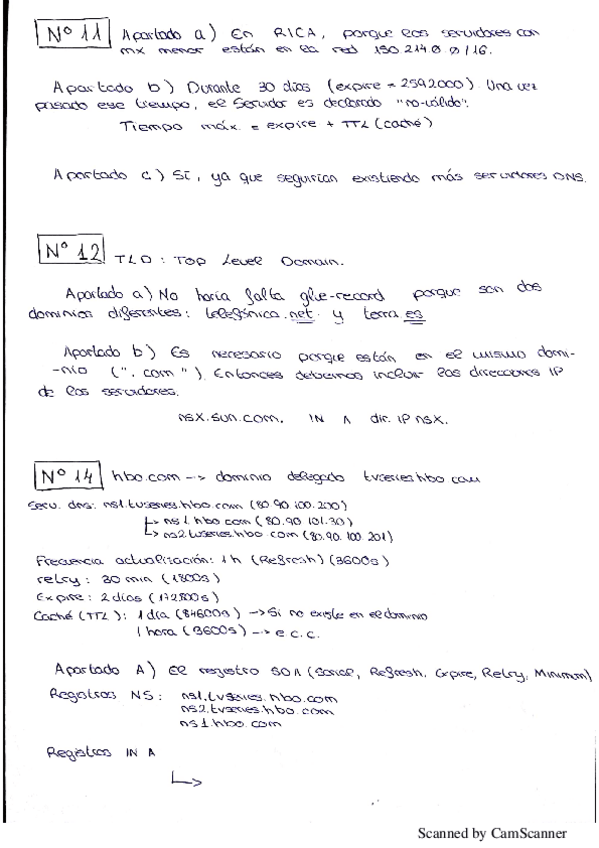 Nº 11 Apartado a) En RICA, porque los servidores con
mx menor están en la red 150.214.0.0/16.
Apartado b) Durante 30 días (expire = 2592000) Una vez
pasado ese tiempo, el servidor es declarado "no-válido".
Tiempo máx. = expire + TTL (caché)
Apartado c) Sí, ya que seguirían existiendo más servidores DNS.
Nº 12 TLD : Top Level Domain.
Apartado a) No haría falta glue-record porque son dos
dominios diferentes: telefónica.net. y terra.es
Apartado b) Es necesario porque están en el mismo domi-
-nio (".com"). Entonces debemos incluir las direcciones IP
de los servidores.
nsx.sun.com. IN A dir. IP nsx.
Nº 14 hbo.com --> dominio delegado tvseries.hbo.com
Serv. dns: ns1.tvseries.hbo.com (80.90.100.200)
↳ ns1.hbo.com (80.90.101.30)
↳ ns2.tvseries.hbo.com (80.90.100.201)
Frecuencia actualización: 1h (Refresh) (3600s)
retry: 30 min (1800s)
Expire: 2 días (172800s)
Caché (TTL): 1 día (84600s) -> Si no existe en el dominio
1 hora (3600s) --> e.c.c.
Apartado A) El registro SOA (Serial, Refresh, Expire, Retry, Minimum)
Registros NS: ns1.tvseries.hbo.com
ns2.tvseries.hbo.com
ns1.hbo.com
Registros IN A
↳
Scanned by CamScanner